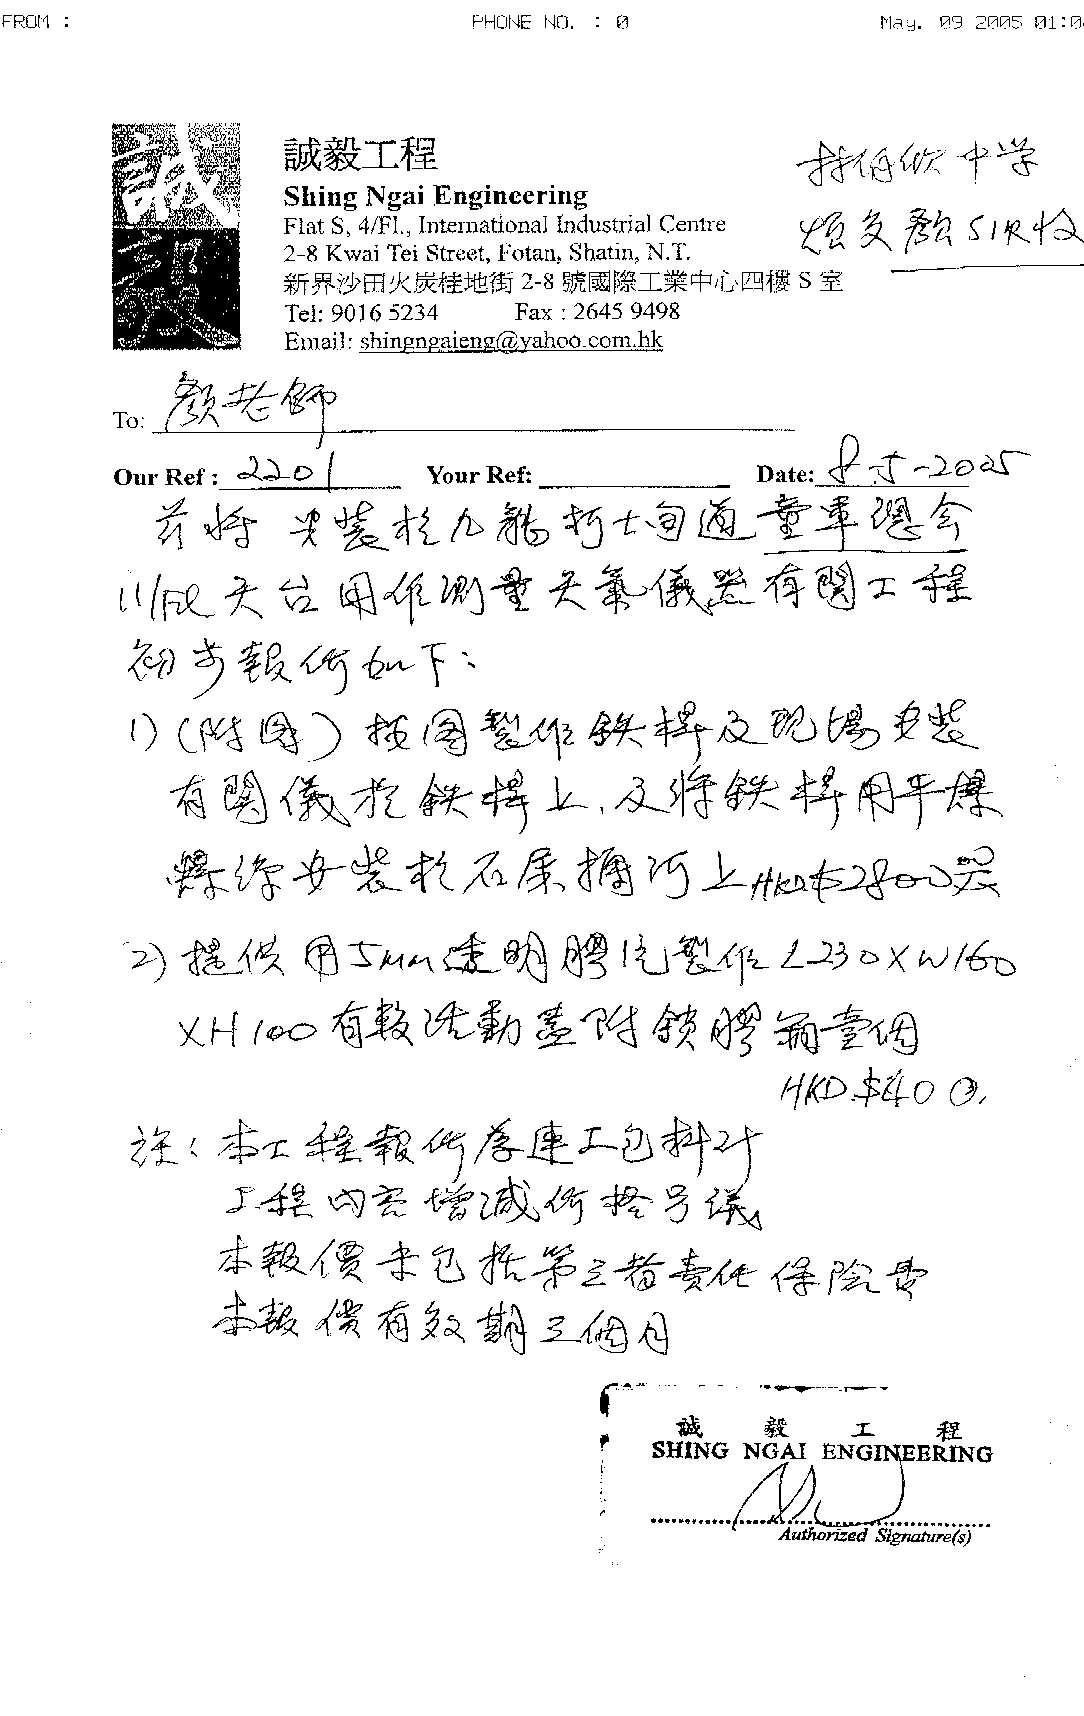 FROM :
PHONE NO. : 0
May. 09 2005 01:0
誠毅
誠毅工程
Shing Ngai Engineering
Flat S, 4/Fl., International Industrial Centre
2-8 Kwai Tei Street, Fotan, Shatin, N.T.
新界沙田火炭桂地街 2-8 號國際工業中心四樓 S 室
Tel: 9016 5234 Fax : 2645 9498
Email: shingngaieng@yahoo.com.hk
林伯欣中学
煩交顏SIR收
To: 顏老師
Our Ref : 2201 Your Ref: Date: 8-5-2005
茲將安裝於九龍柯士甸道童軍總会
11/FL天台用作測量天氣儀器有関工程
初步報价如下:
1) (附图) 按图製作鉄桿及現場安裝
有関儀於鉄桿上,及將鉄桿用平爆
爆絲安裝於石屎上HKD$2800
2) 提供用5mm透明膠製作L230XW160
XH100有較活動蓋附鎖膠箱壹個
HKD.$400.
註:本工程報价為連工包料計
工程內容增減价格另議
本報價未包括第三者責任保險費
本報價有效期三個月
誠毅工程
SHING NGAI ENGINEERING
Authorized Signature(s)